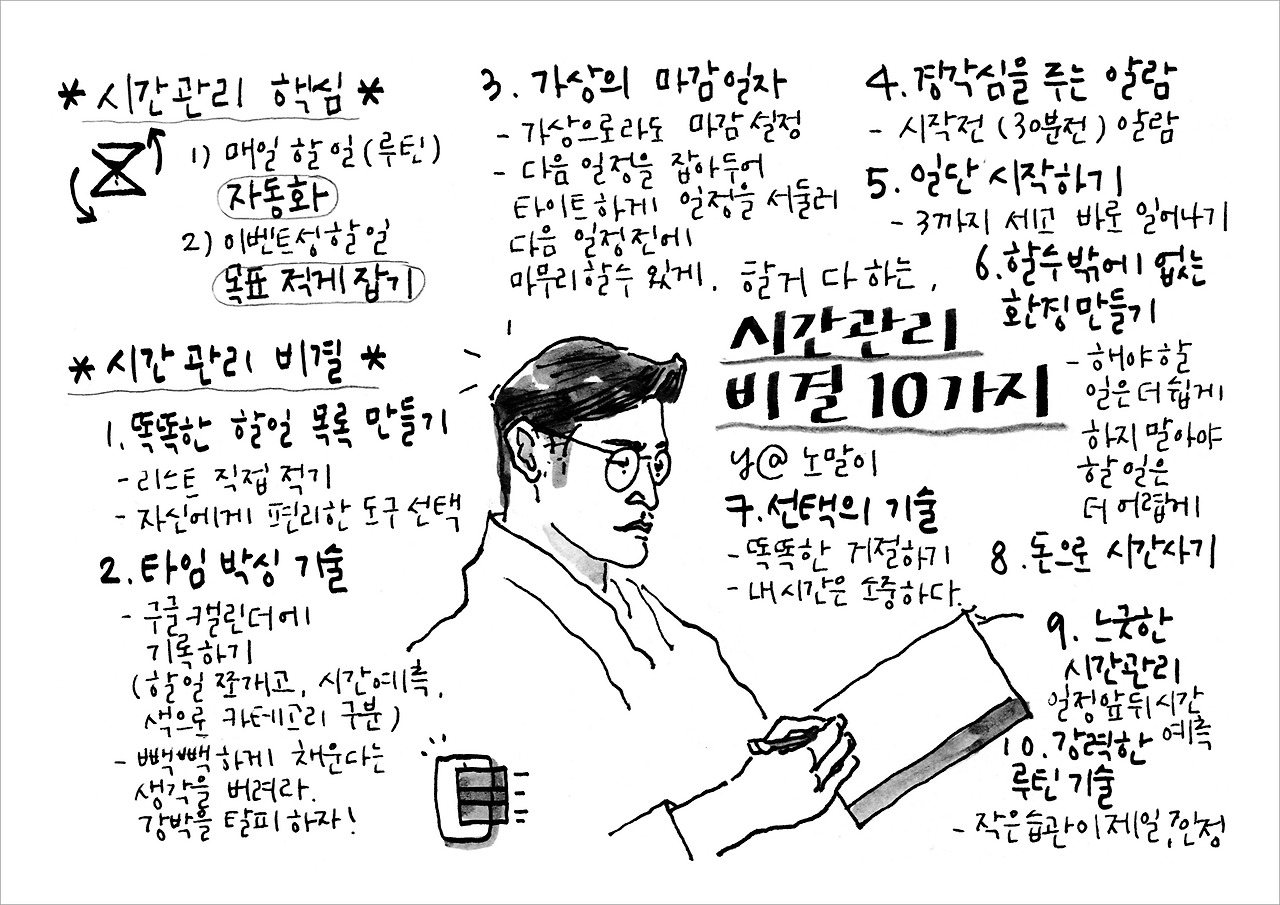 * 시간관리 핵심 *
1) 매일 할 일 (루틴)
자동화
2) 이벤트성 할 일
목표 적게 잡기
* 시간관리 비결 *
1. 똑똑한 할일 목록 만들기
- 리스트 직접 적기
- 자신에게 편리한 도구 선택
2. 타임 박싱 기술
- 구글 캘린더에
기록하기
(할일 쪼개고, 시간예측,
색으로 카테고리 구분)
- 빽빽하게 채운다는
생각을 버려라.
강박을 탈피하자!
3. 가상의 마감일자
- 가상으로라도 마감 설정
- 다음 일정을 잡아두어
타이트하게 일정을 서둘러
다음 일정전에
마무리할수 있게.
할거 다 하는,
시간관리
비결 10가지
y@ 노말이
4. 경각심을 주는 알람
- 시작전 (30분전) 알람
5. 일단 시작하기
- 3까지 세고 바로 일어나기
6. 할수밖에 없는
환경 만들기
- 해야 할
일은 더 쉽게
하지 말아야
할 일은
더 어렵게
7. 선택의 기술
- 똑똑한 거절하기
- 내 시간은 소중하다.
8. 돈으로 시간사기
9. 느긋한
시간관리
일정앞뒤 시간
예측
10. 강력한
루틴 기술
- 작은 습관이 제일 안정